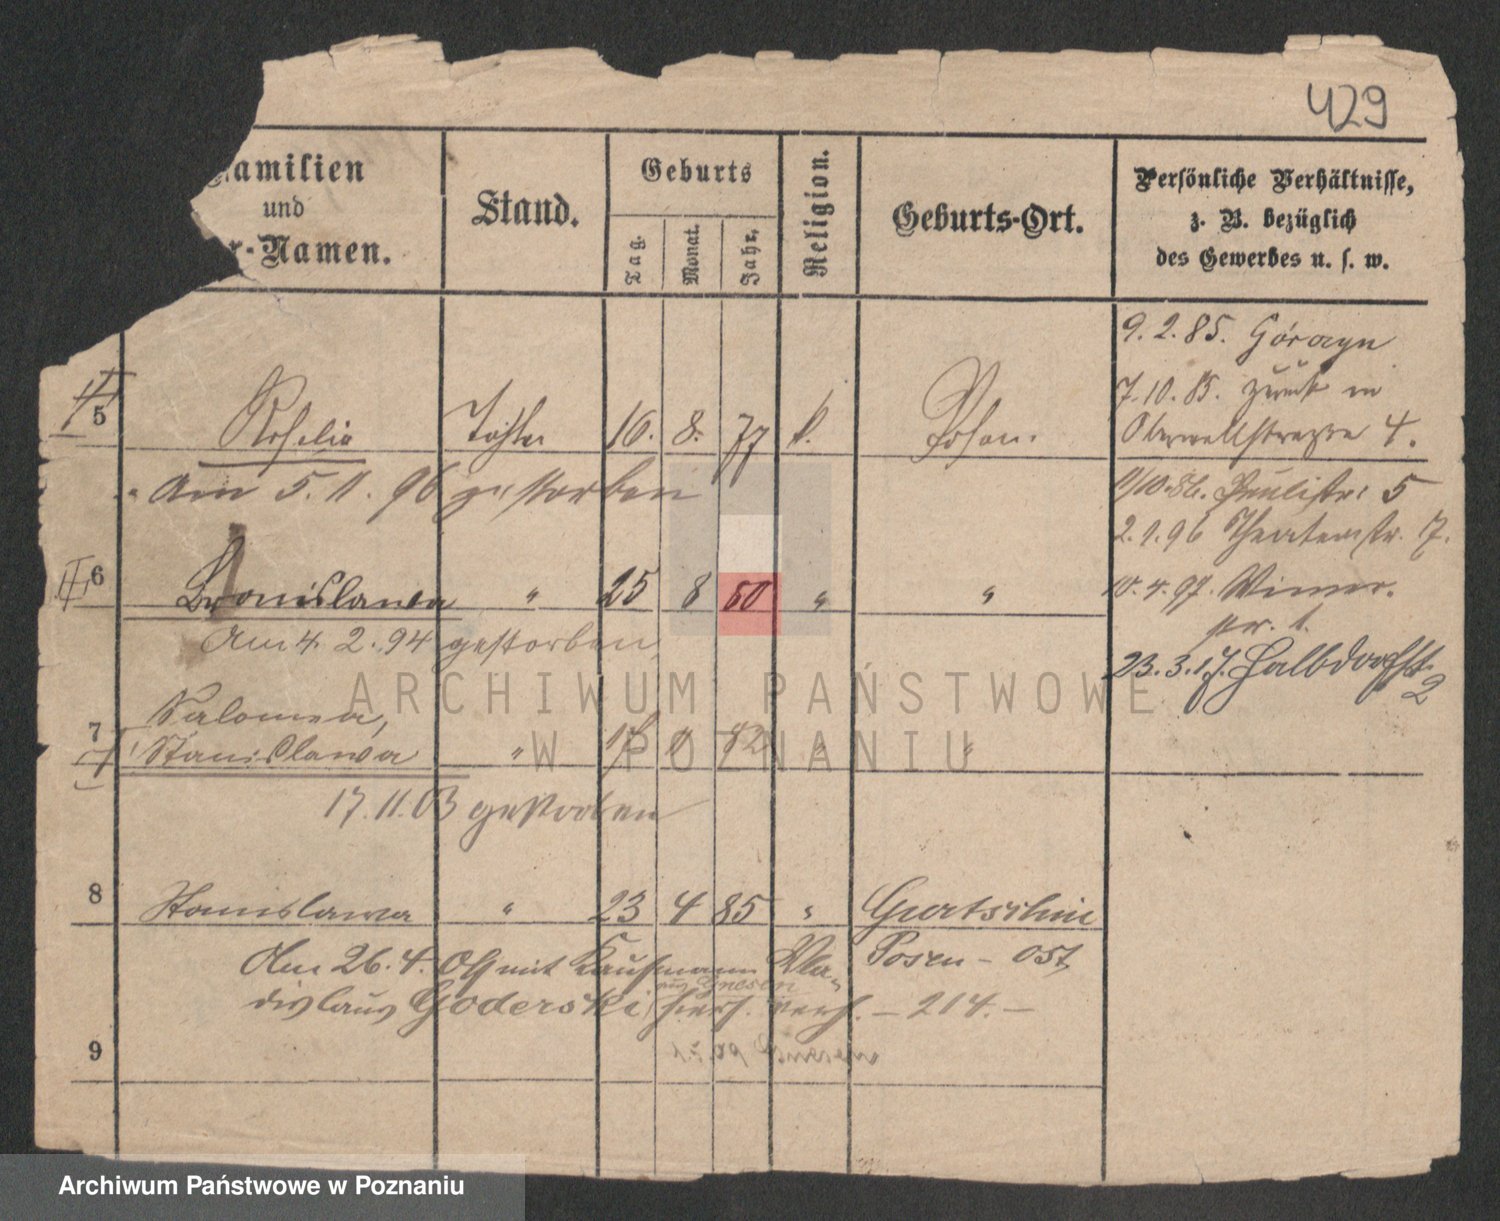 429
Familien
und
r-Namen.
Stand.
Geburts
Tag.
Monat.
Jahr.
Religion.
Geburts-Ort.
Persönliche Verhältnisse,
z. B. bezüglich
des Gewerbes u. s. w.
9.2.85. Górczyn
7.10.85. zurück in
Oberwallstrasse 4.
5 Rosalie Tochter 16. 8. 77 k. Posen.
Am 5. 11. 96 gestorben
5
2.1.96 Theaterstr. 7.
6 Bronislawa " 25 8 80 " "
10.4.97. Wiener-
str. 1.
Am 4. 2. 94 gestorben
23.3.17. Halbdorfstr.
2
7 Salomea,
Stanislawa " 82 " "
17.11.03 gestorben
8 Stanislawa " 23 4 85 " Gurtschin
Posen - Ost
Am 26.4. mit Kaufmann Wla-
aus Gnesen
dislaus Goderski, hier verh. - 214. -
9
ARCHIWUM PAŃSTWOWE
W POZNANIU
Archiwum Państwowe w Poznaniu